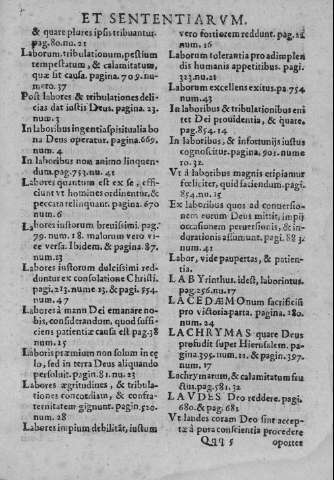 ET SENTENTIARVM.
& quare plures ipsis tribuantur.
pag.80.nu.21
Laborum, tribulationum, pestium
tempestatum, & calamitatum,
quæ sit causa. pagina. 709. nu-
mero.37
Post labores & tribulationes deli-
cias dat iustis Deus. pagina. 23.
num. 3
In laboribus ingentia spiritualia bo
na Deus operatur. pagina.669.
num. 4
In laboribus non animo linquen-
dum.pag.753.nu.41
Labores quantum est ex se, effi-
ciunt vt homines ordinentur, &
peccata relinquant. pagina. 670
num. 6
Labores iustorum breuissimi. pag.
79. num. 18. malorum vero vi-
ce versa. Ibidem, & pagina. 87.
num. 13
Labores iustorum dulcissimi red-
duntur ex consolatione Christi.
pagi, 213. nume 13, & pagi. 554.
num. 47
Labores à mann Dei emanare no-
bis, considerandum, quod suffi-
ciens patientiæ causa est pag.38
num. 15
Laboris præmium non solum in cę
lo, sed in terra Deus aliquando
persoluit. pagin. 81. nu. 23
Labores ægritudines, & tribula-
tiones concordiam, & confra-
ternitatem gignunt. pagin, 520.
num. 28
Labores impium debilitãt, iustum
vero fortiorem reddunt. pag. 12
num. 16
Laborum tolerantia pro adimplen
dis humanis appetitibus. pagi.
323.nu.21
Laborum excellens exitus. pa.754
num. 43
In laboribus & tribulationibus eni
tet Dei prouidentia, & quare,
pag.854.14
In laboribus, & infortunijs iustus
cognoscitur. pagina. 901. nume
ro. 32.
Vt à laboribus magnis eripiantur
fœliciter, quid faciendum. pagi.
854. nu. 15
Ex laboribus quos ad conuersio-
nem eorum Deus mittit, impij
occasionem peruersionis, & in-
durationis assumunt. pagi. 883.
num. 41
Labor, vide paupertas, & patien-
tia.
LABYrinthus. idest, laborintus.
pag.256.nu.17
LACEDÆMOnum sacrificia
pro victoria parta. pagina. 180.
num. 24
LACHRYMAS quare Deus
profudit super Hierusalem. pa-
gina.395. num. 21. & pagin.397.
num. 17
Lachrymarum, & calamitatum fru
ctus.pag.581.32
LAVDES Deo reddere. pagi.
680. & pag. 681
Vt landes coram Deo sint accep-
tæ à pura conscientia procedere
Qqq 5 oportet